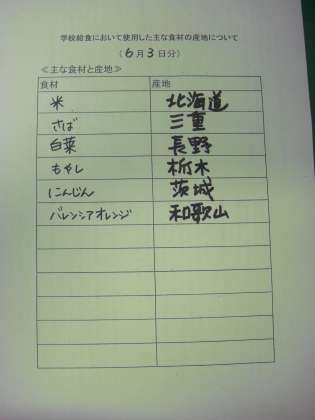 学校給食において使用した主な食材の産地について
(6月3日分)
≪主な食材と産地≫
食材 産地
米 北海道
さば 三重
白菜 長野
もやし 栃木
にんじん 茨城
バレンシアオレンジ 和歌山